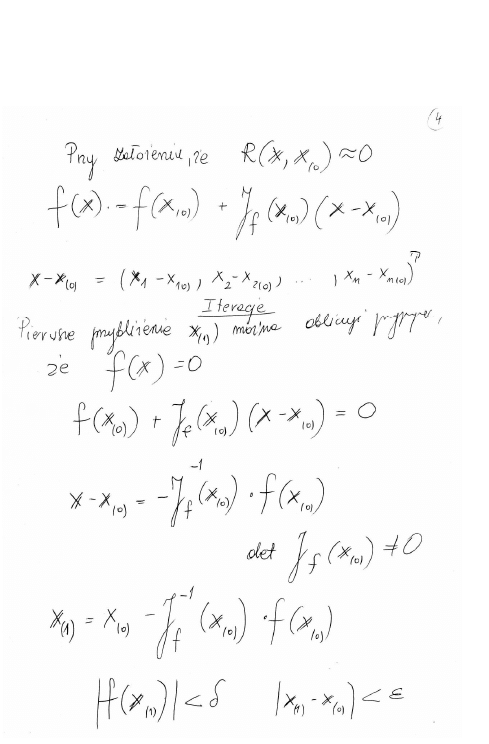 4
Przy założeniu, że R(x, x₍₀₎) ≈ 0
f(x) = f(x₍₀₎) + J_f (x₍₀₎) (x - x₍₀₎)
x - x₍₀₎ = (x₁ - x₁₍₀₎, x₂ - x₂₍₀₎, ... , xₙ - xₙ₍₀₎)ᵀ
Iteracje
Pierwsze przybliżenie x₍₁₎ można obliczyć
że f(x) = 0
f(x₍₀₎) + J_f (x₍₀₎) (x - x₍₀₎) = 0
x - x₍₀₎ = -J_f⁻¹ (x₍₀₎) · f(x₍₀₎)
det J_f (x₍₀₎) ≠ 0
x₍₁₎ = x₍₀₎ - J_f⁻¹ (x₍₀₎) · f(x₍₀₎)
|f(x₍₁₎)| < δ |x₍₁₎ - x₍₀₎| < ε